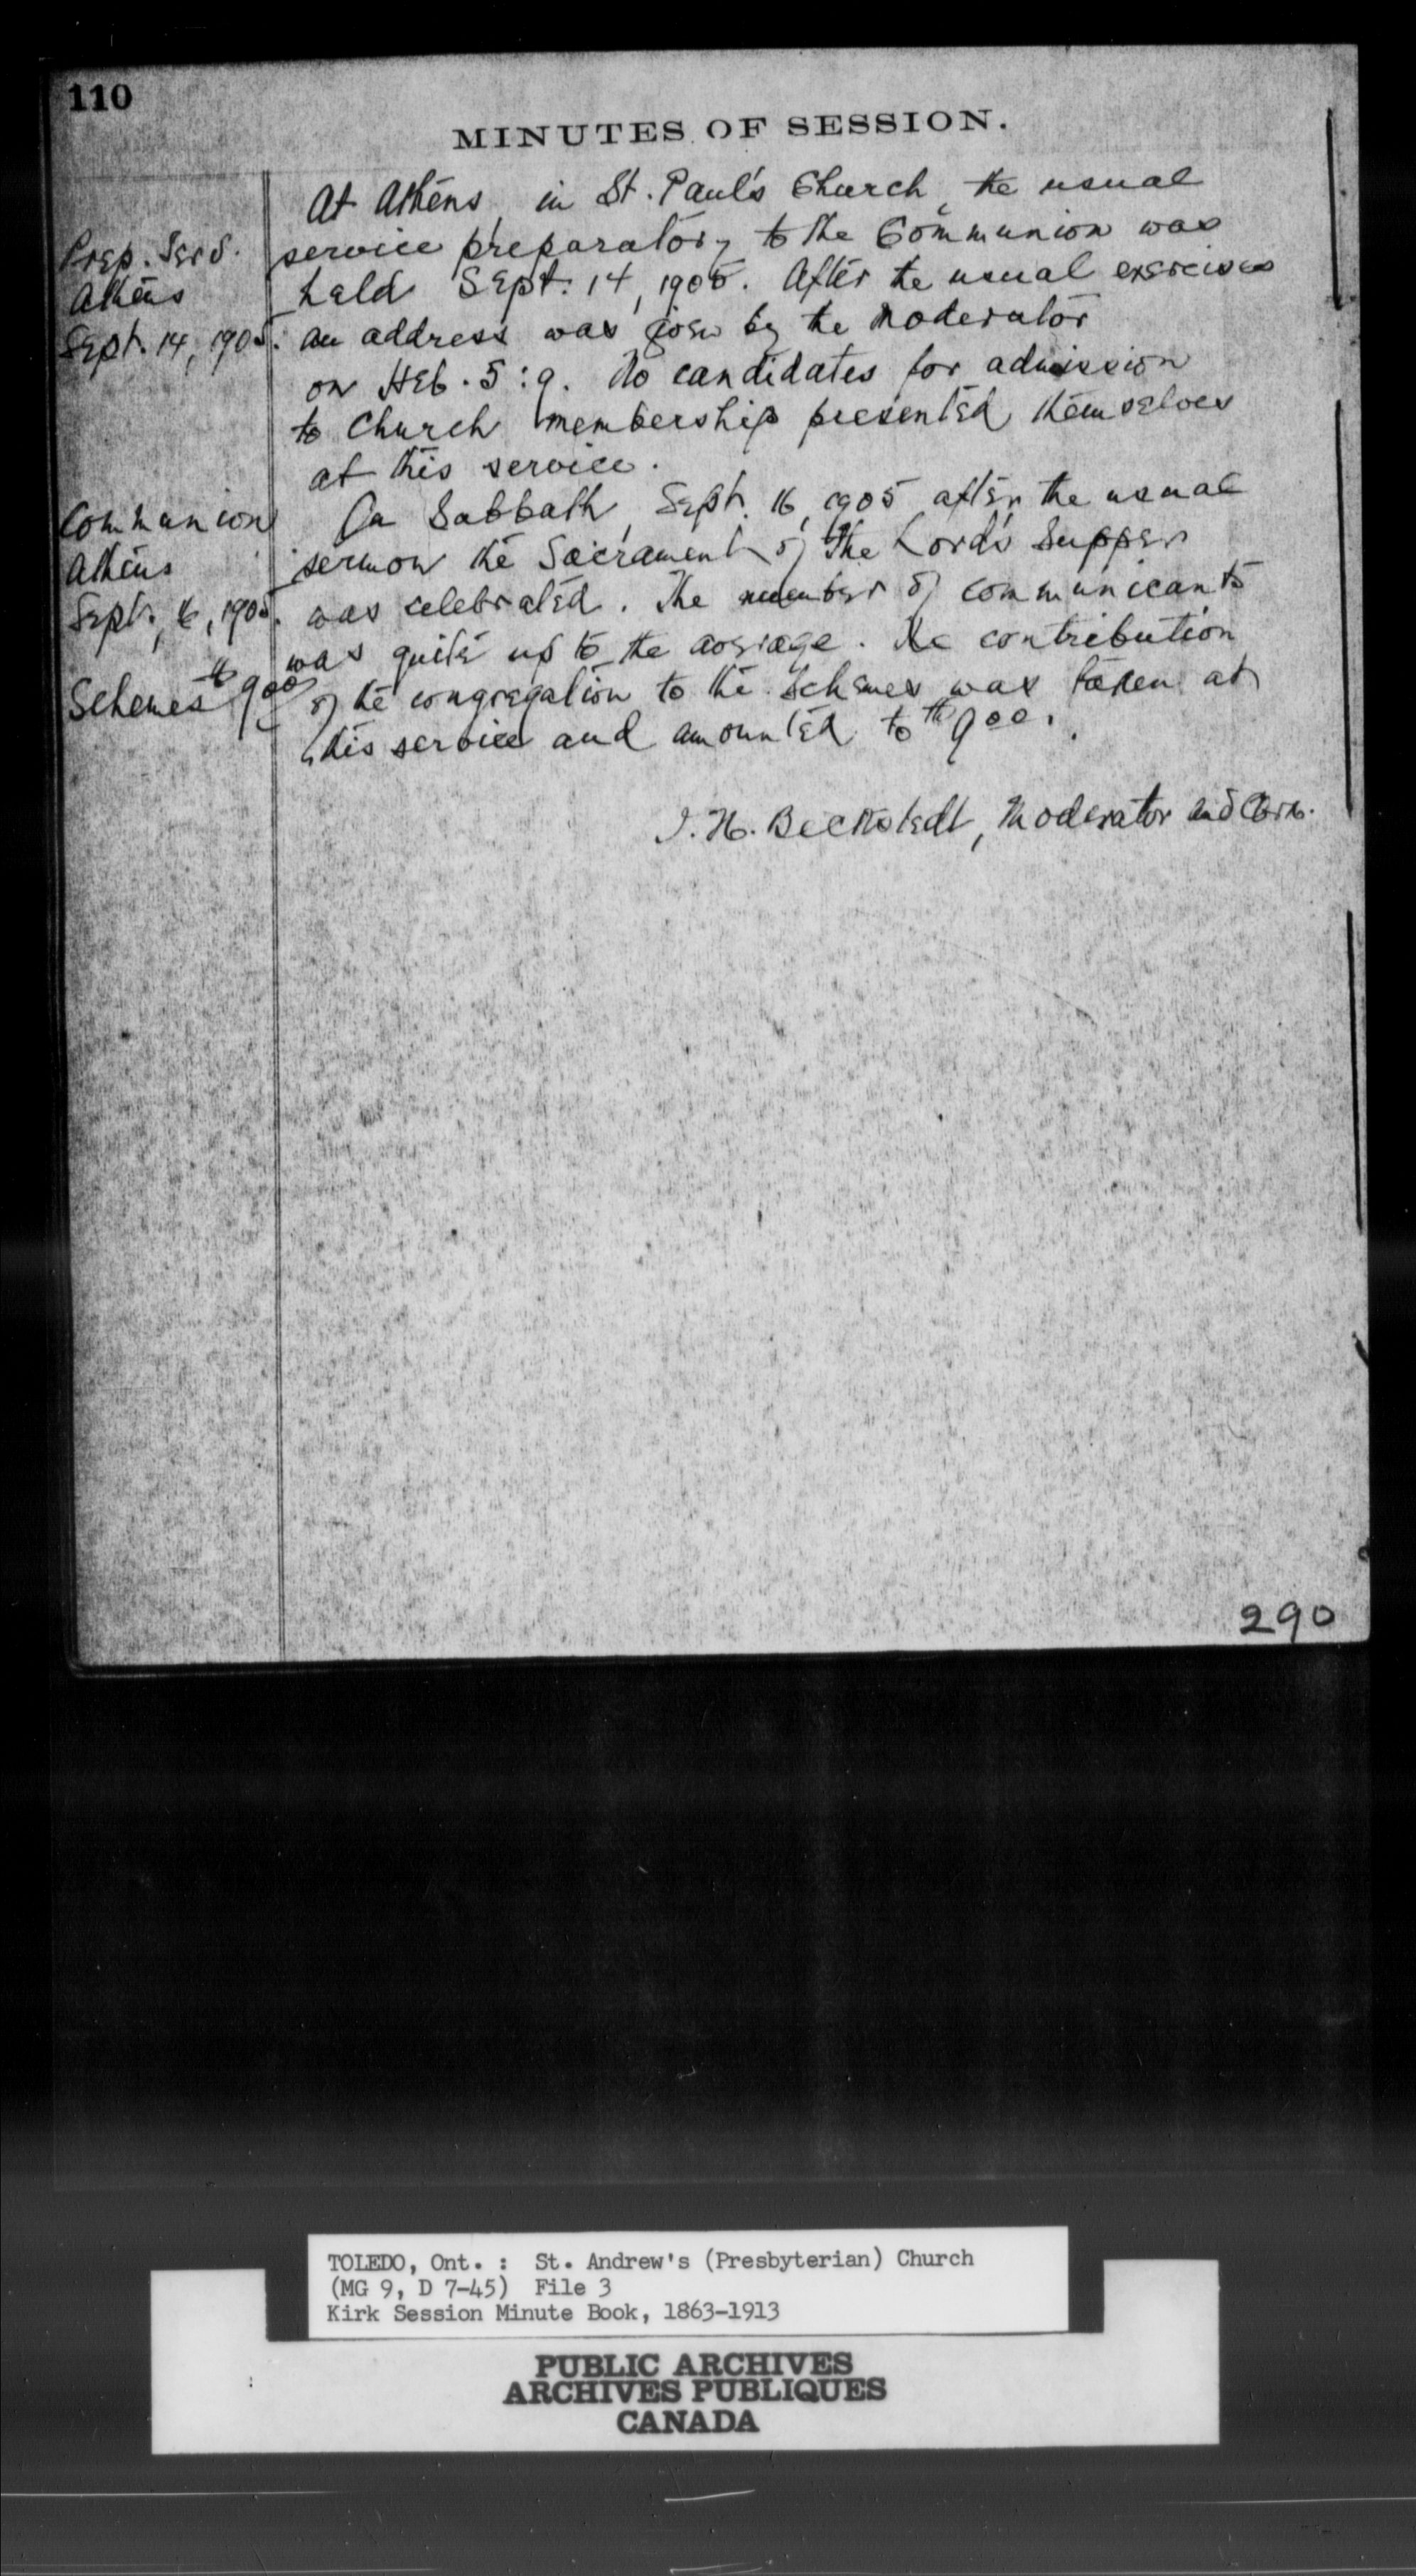 110
MINUTES OF SESSION.
At Athens, in St. Paul's Church, the usual
Prep. Serv.
service preparatory to the Communion was
Athens
held Sept. 14, 1905. After the usual exercises
Sept. 14, 1905.
an address was given by the Moderator
on Heb. 5:9. No candidates for admission
to Church membership presented themselves
at this service.
Communion
On Sabbath, Sept. 16, 1905 after the usual
Athens
sermon the Sacrament of the Lord's Supper
Sept. 16, 1905.
was celebrated. The number of communicants
was quite up to the average. The contribution
Schemes $9.00
of the congregation to the Schemes was taken at
this service and amounted to $9.00.
J. H. Beckstedt, Moderator and Clerk.
290
TOLEDO, Ont. : St. Andrew's (Presbyterian) Church
(MG 9, D 7-45) File 3
Kirk Session Minute Book, 1863-1913
PUBLIC ARCHIVES
ARCHIVES PUBLIQUES
CANADA